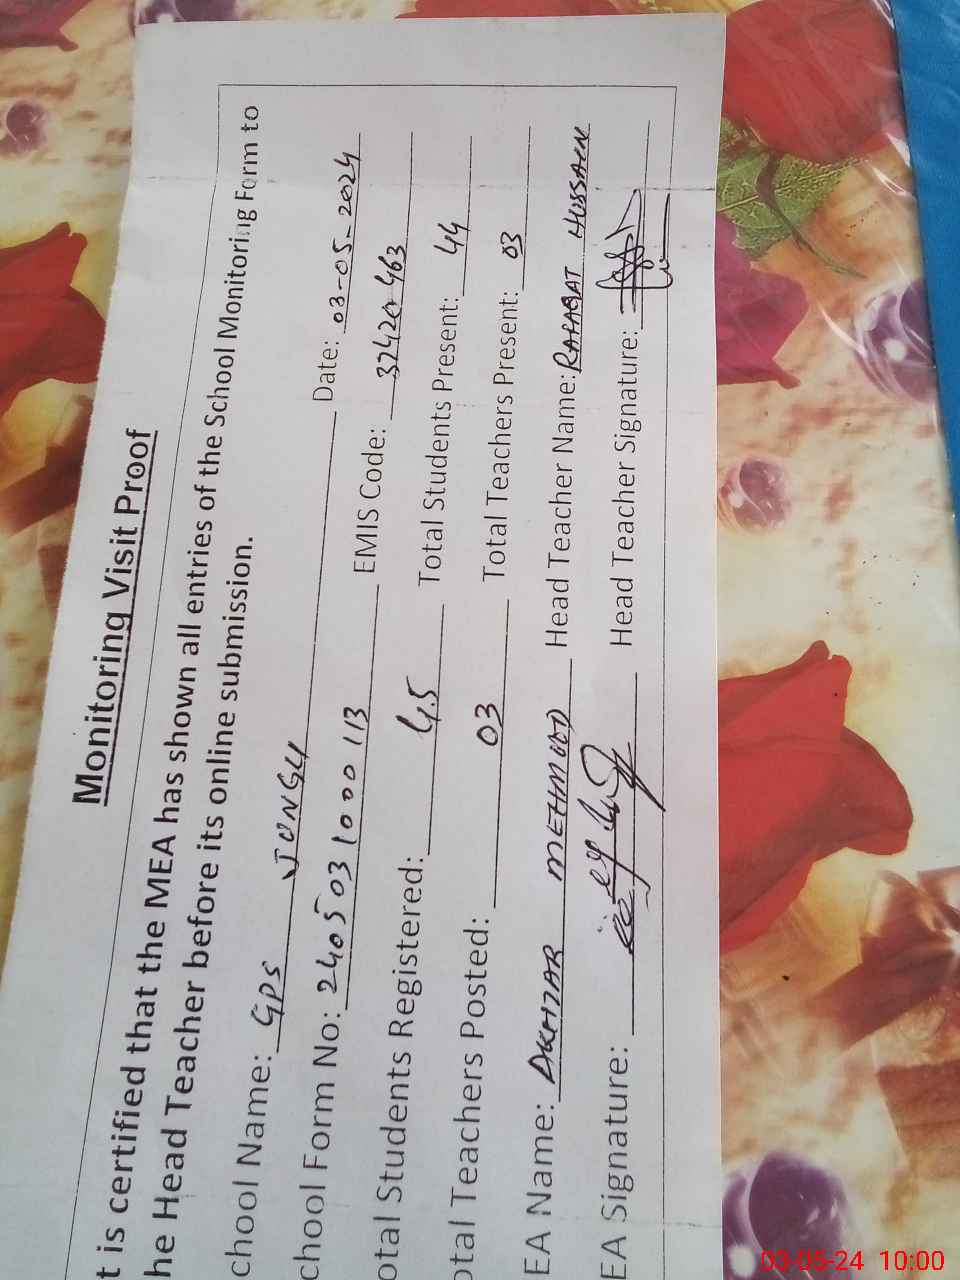 Monitoring Visit Proof
t is certified that the MEA has shown all entries of the School Monitoring Form to
he Head Teacher before its online submission.
chool Name: GPS JONGU Date: 03-05-2024
chool Form No: 2405031000113 EMIS Code: 37420463
otal Students Registered: 45 Total Students Present: 44
otal Teachers Posted: 03 Total Teachers Present: 03
EA Name: MEHMOOD Head Teacher Name: RAFAQAT HUSSAIN
EA Signature: Head Teacher Signature:
03-05-24 10:00